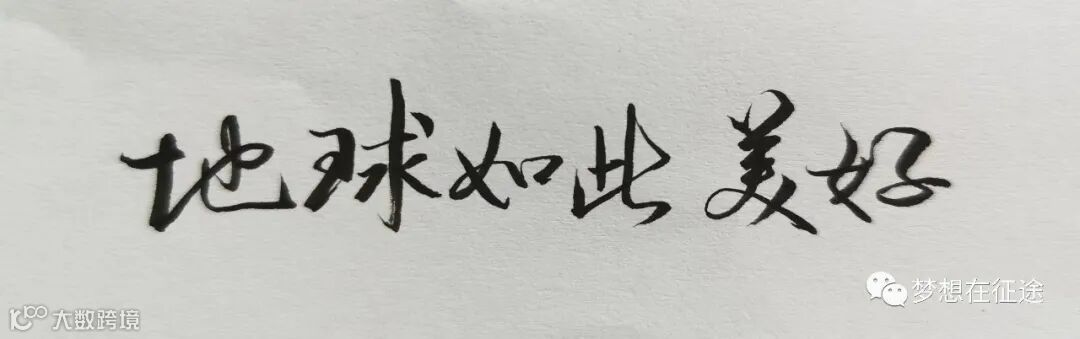 地球如此美好
梦想在征途
大数跨境